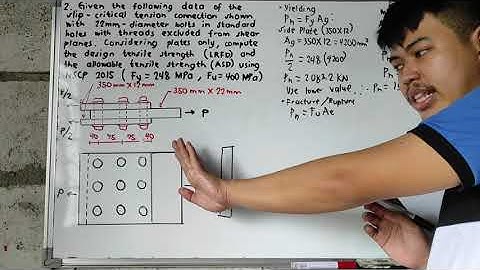 2. Given the following data of the
slip-critical tension connection shown
with 22mm-diameter bolts in standard
holes with threads excluded from shear
planes. Considering plates only, compute
the design tensile strength (LRFD) and
the allowable tensile strength (ASD) using
NSCP 2015 (Fy = 248 MPa, Fu = 400 MPa)
350mm X 12mm
350mm X 22mm
P/2
P/2
P
40 75 75 40
P
• Yielding
Pn = Fy Ag
Side Plate (350x12)
Ag = 350 X 12 = 4200 mm²
Pn/2 = 248 (4200)
Pn = 2083.2 kN
Use lower value ∴ Pn =
• Fracture / Rupture
Pn = Fu Ae